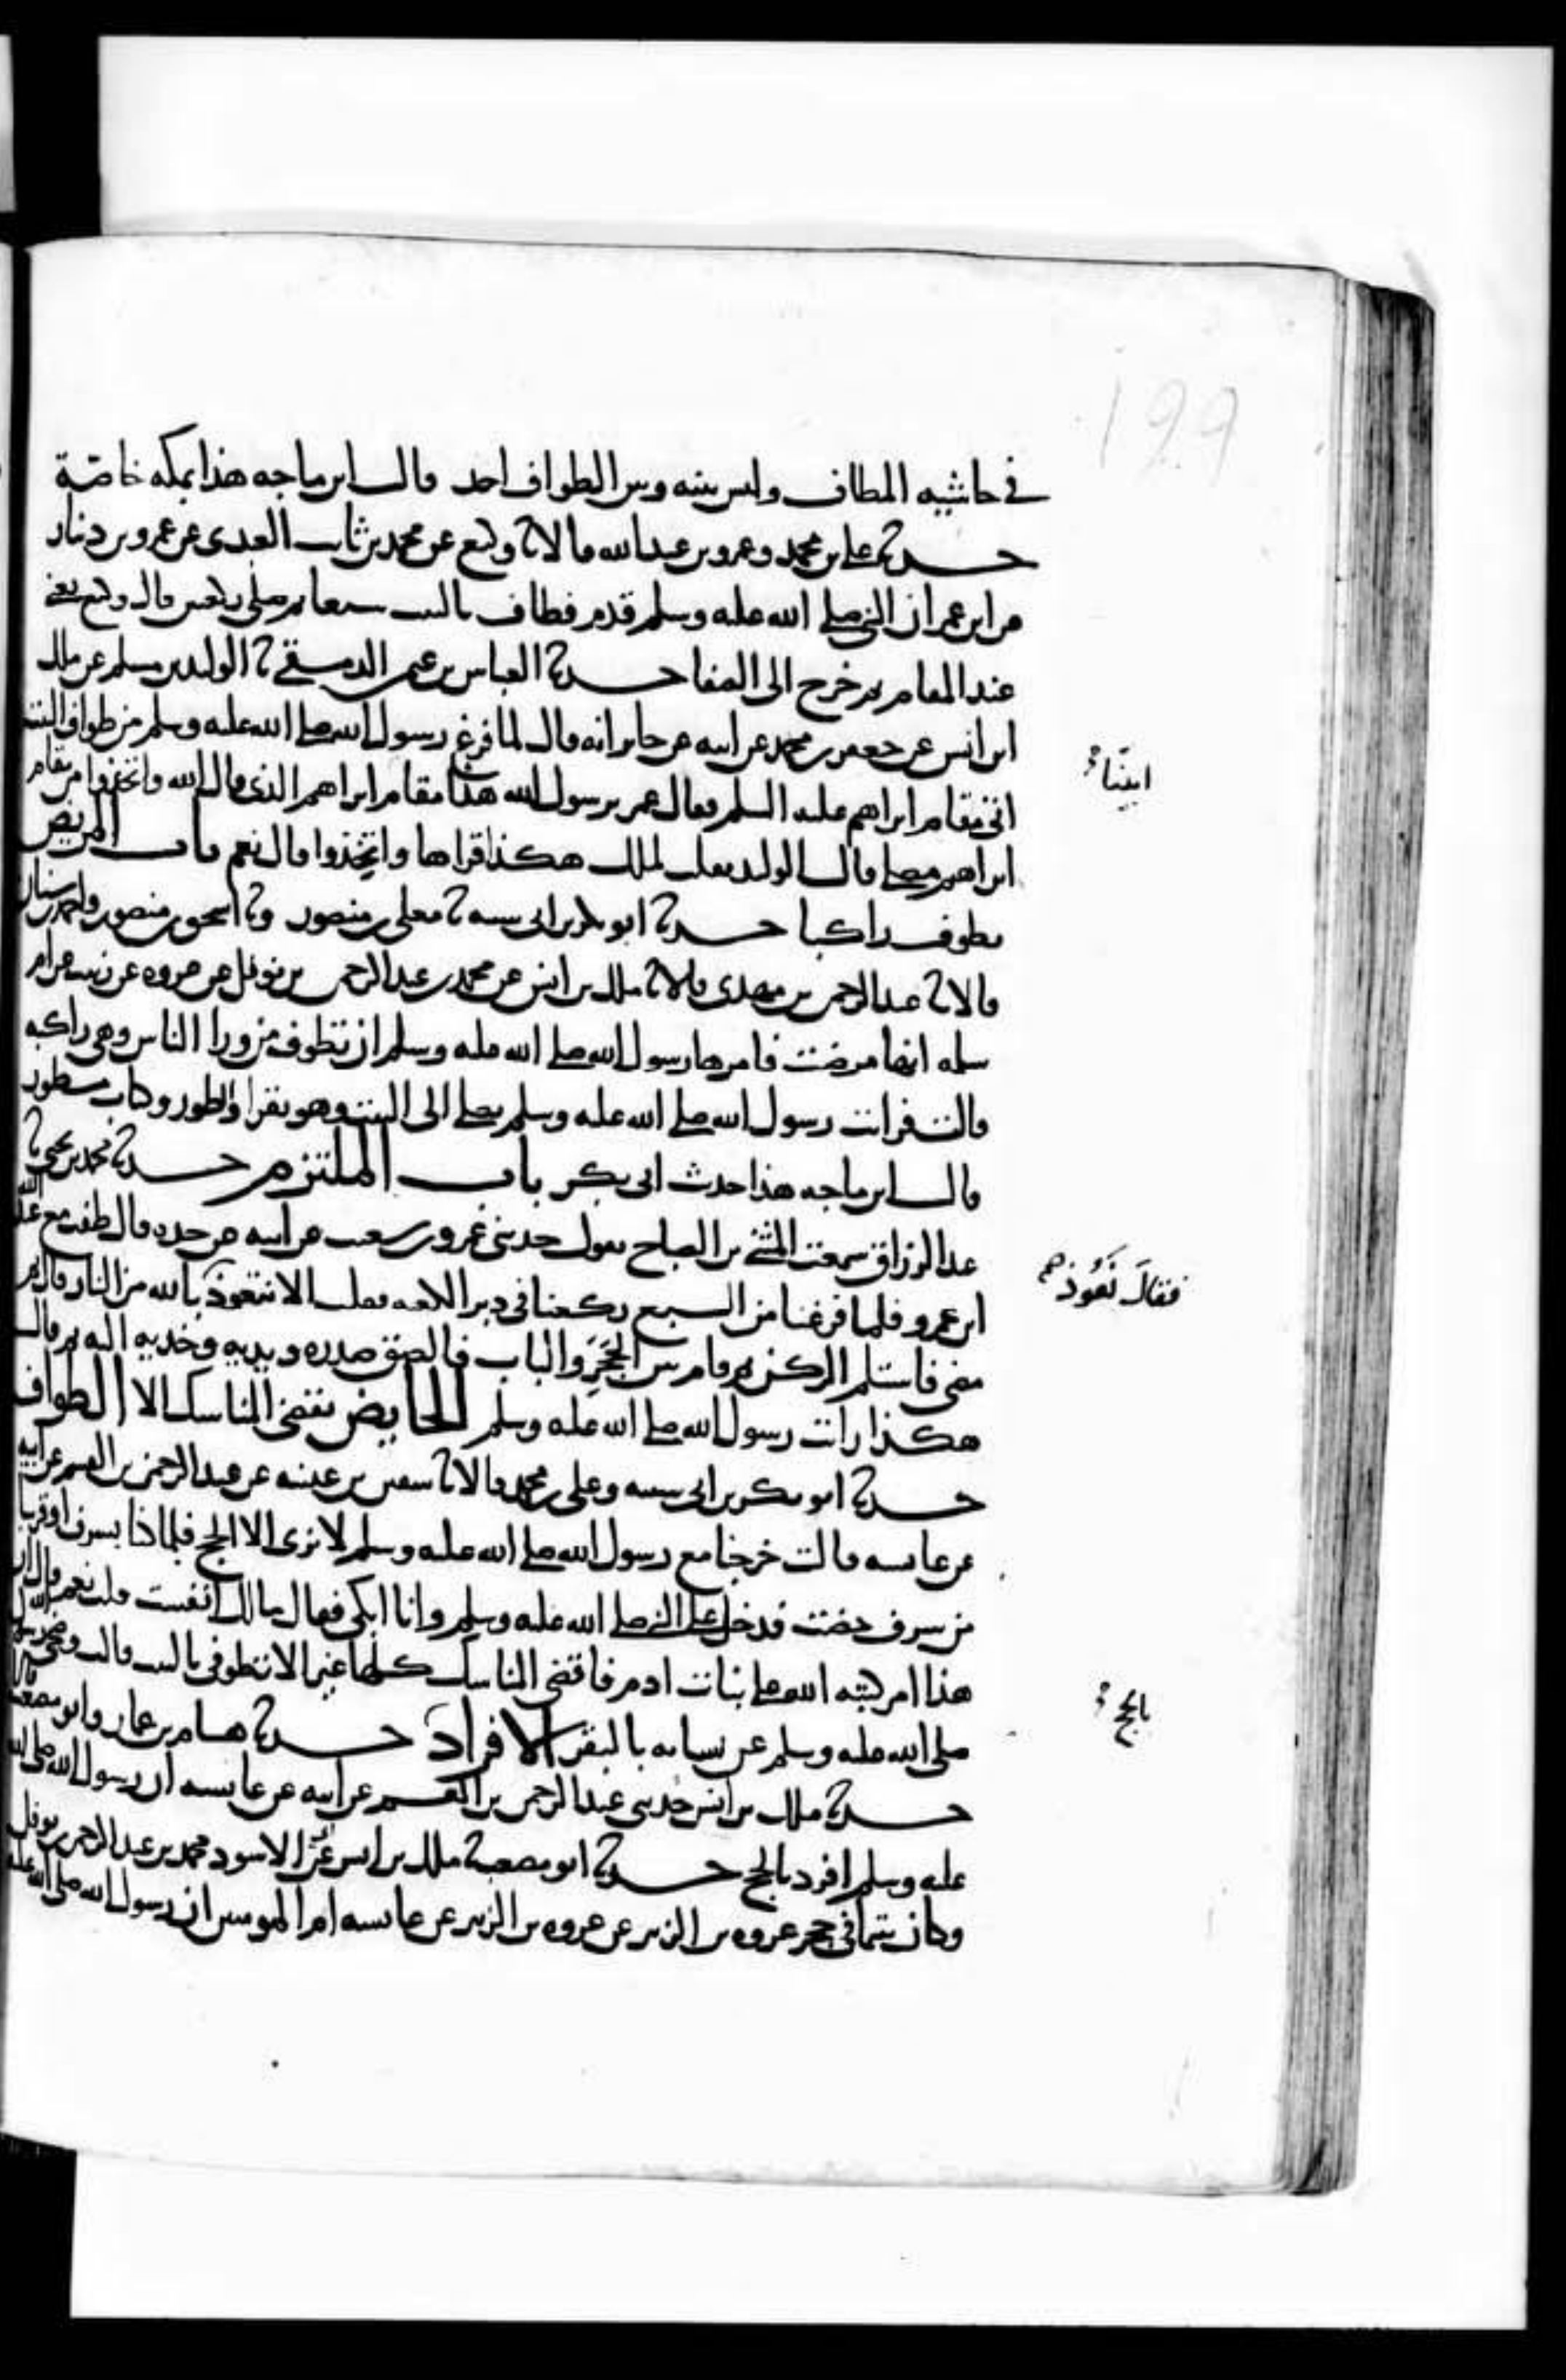 199
في حاشيه المطاف وليس بينه وبين الطواف احد قال ابن ماجه هذا بمكه خاصّة
حدثنا علي بن محمد وعمرو بن عبد الله قالا ثنا وكيع عن محمد بن ثابت العبدي عن عمرو بن دينار
عن ابن عمر ان النبي صلى الله عليه وسلم قدم فطاف بالبيت سبعا ثم صلى ركعتين قال وكيع يعني
عند المقام ثم خرج الى الصفا حدثنا العباس بن عثمن الدمشقي ثنا الوليد بن مسلم عن ملك
ابن انس عن جعفر بن محمد عن ابيه عن جابر انه قال لما فرغ رسول الله صلى الله عليه وسلم من طواف البيت
اتى مقام ابراهيم عليه السلم فقال عمر يرسول الله هذا مقام ابراهيم الذي قال الله واتخذوا من مقام
ابراهيم مصلى قال الوليد فقلت لملك هكذا قراها واتخِذوا قال نعم باب المريض
يطوف راكبا حدثنا ابو بكر بن ابي شيبه ثنا معلى بن منصور وثنا اسحق بن منصور واحمد بن سنان
قالا ثنا عبد الرحمن بن مهدي قالا ثنا ملك بن انس عن محمد بن عبد الرحمن بن نوفل عن عروه عن زينب عن ام
سلمه انها مرضت فامرها رسول الله صلى الله عليه وسلم ان تطوف من ورا الناس وهي راكبه
قالت فرايت رسول الله صلى الله عليه وسلم يصلي الى البيت وهو يقرا والطور وكتاب مسطور
قال ابن ماجه هذا حديث ابي بكر باب الملتزم حدثنا محمد بن يحيى ثنا
عبد الرزاق سمعت المثنى بن الصباح يقول حدثني عمرو بن شعيب عن ابيه عن جده قال طفت مع عبد الله
ابن عمرو فلما فرغنا من السبع ركعنا في دبر الكعبه فقلت الا نتعوذ بالله من النار قال ثم
مضى فاستلم الركن ثم قام بين الحَجَرِ والباب فالصق صدره ويديه وخديه اليه ثم قال
هكذا رايت رسول الله صلى الله عليه وسلم الحايض تقضي المناسك الا الطواف
حدثنا ابو بكر بن ابي شيبه وعلي بن محمد قالا ثنا سفين بن عيينه عن عبد الرحمن بن القسم عن ابيه
عن عايشه قالت خرجنا مع رسول الله صلى الله عليه وسلم لا نرى الا الحج فلما كنا بسرف او قريبا
من سرف حضت فدخل علي النبي صلى الله عليه وسلم وانا ابكي فقال مالك انفست قلت نعم قال ان
هذا امر كتبه الله على بنات ادم فاقضي المناسك كلها غير الا تطوفي بالبيت قالت وضحى رسول الله
صلى الله عليه وسلم عن نسايه بالبقر الافراد حدثنا هشام بن عمار وابو مصعب قالا
حدثنا ملك بن انس حدثني عبد الرحمن بن القسم عن ابيه عن عايشه ان رسول الله صلى الله
عليه وسلم افرد بالحج حدثنا ابو مصعب ثنا ملك بن انس عن ابي الاسود محمد بن عبد الرحمن بن نوفل
وكان يتيما في حجر عروه بن الزبير عن عروه بن الزبير عن عايشه ام المومنين ان رسول الله صلى الله عليه
فقالَ نَعُوذ
بالحج